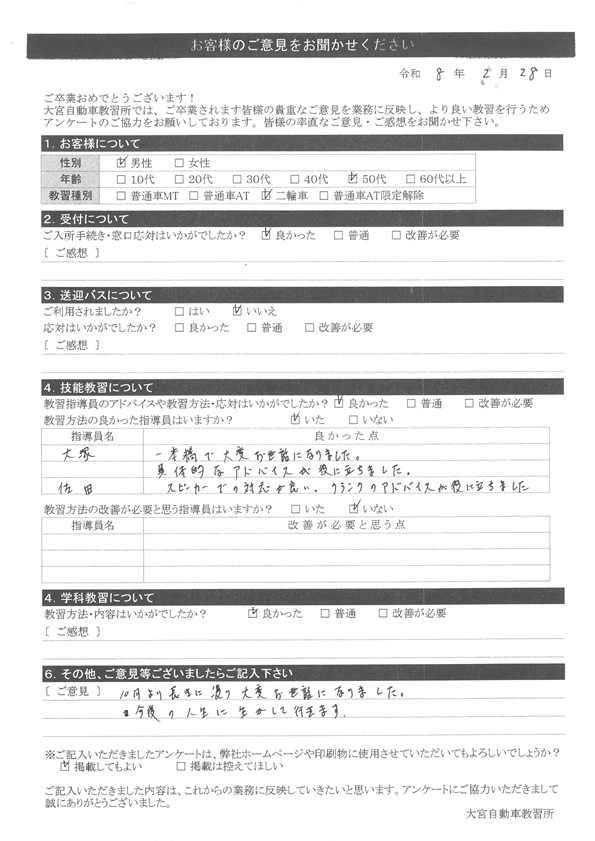 お客様のご意見をお聞かせください
令和 8 年 2 月 28 日
ご卒業おめでとうございます！
大宮自動車教習所では、ご卒業されます皆様の貴重なご意見を業務に反映し、より良い教習を行うため
アンケートのご協力をお願いしております。皆様の率直なご意見・ご感想をお聞かせ下さい。
1. お客様について
性別 ☑ 男性 □ 女性
年齢 □ 10代 □ 20代 □ 30代 □ 40代 ☑ 50代 □ 60代以上
教習種別 □ 普通車MT □ 普通車AT ☑ 二輪車 □ 普通車AT限定解除
2. 受付について
ご入所手続き・窓口応対はいかがでしたか？ ☑ 良かった □ 普通 □ 改善が必要
[ ご感想 ]
3. 送迎バスについて
ご利用されましたか？ □ はい ☑ いいえ
応対はいかがでしたか？ □ 良かった □ 普通 □ 改善が必要
[ ご感想 ]
4. 技能教習について
教習指導員のアドバイスや教習方法・応対はいかがでしたか？ ☑ 良かった □ 普通 □ 改善が必要
教習方法の良かった指導員はいますか？ ☑ いた □ いない
指導員名 良かった点
大塚 一本橋で大変お世話になりました。
具体的なアドバイスが役に立ちました。
佐田 スピーカーでの対応が良い、クランクのアドバイスが役に立ちました
教習方法の改善が必要と思う指導員はいますか？ □ いた ☑ いない
指導員名 改善が必要と思う点
4. 学科教習について
教習方法・内容はいかがでしたか？ ☑ 良かった □ 普通 □ 改善が必要
[ ご感想 ]
6. その他、ご意見等ございましたらご記入下さい
[ ご意見 ] 10月より長きに渡り大変お世話になりました。
今後の人生に生かして行きます。
※ご記入いただきましたアンケートは、弊社ホームページや印刷物に使用させていただいてもよろしいでしょうか？
☑ 掲載してもよい □ 掲載は控えてほしい
ご記入いただきました内容は、これからの業務に反映していきたいと思います。アンケートにご協力いただきまして
誠にありがとうございました。
大宮自動車教習所